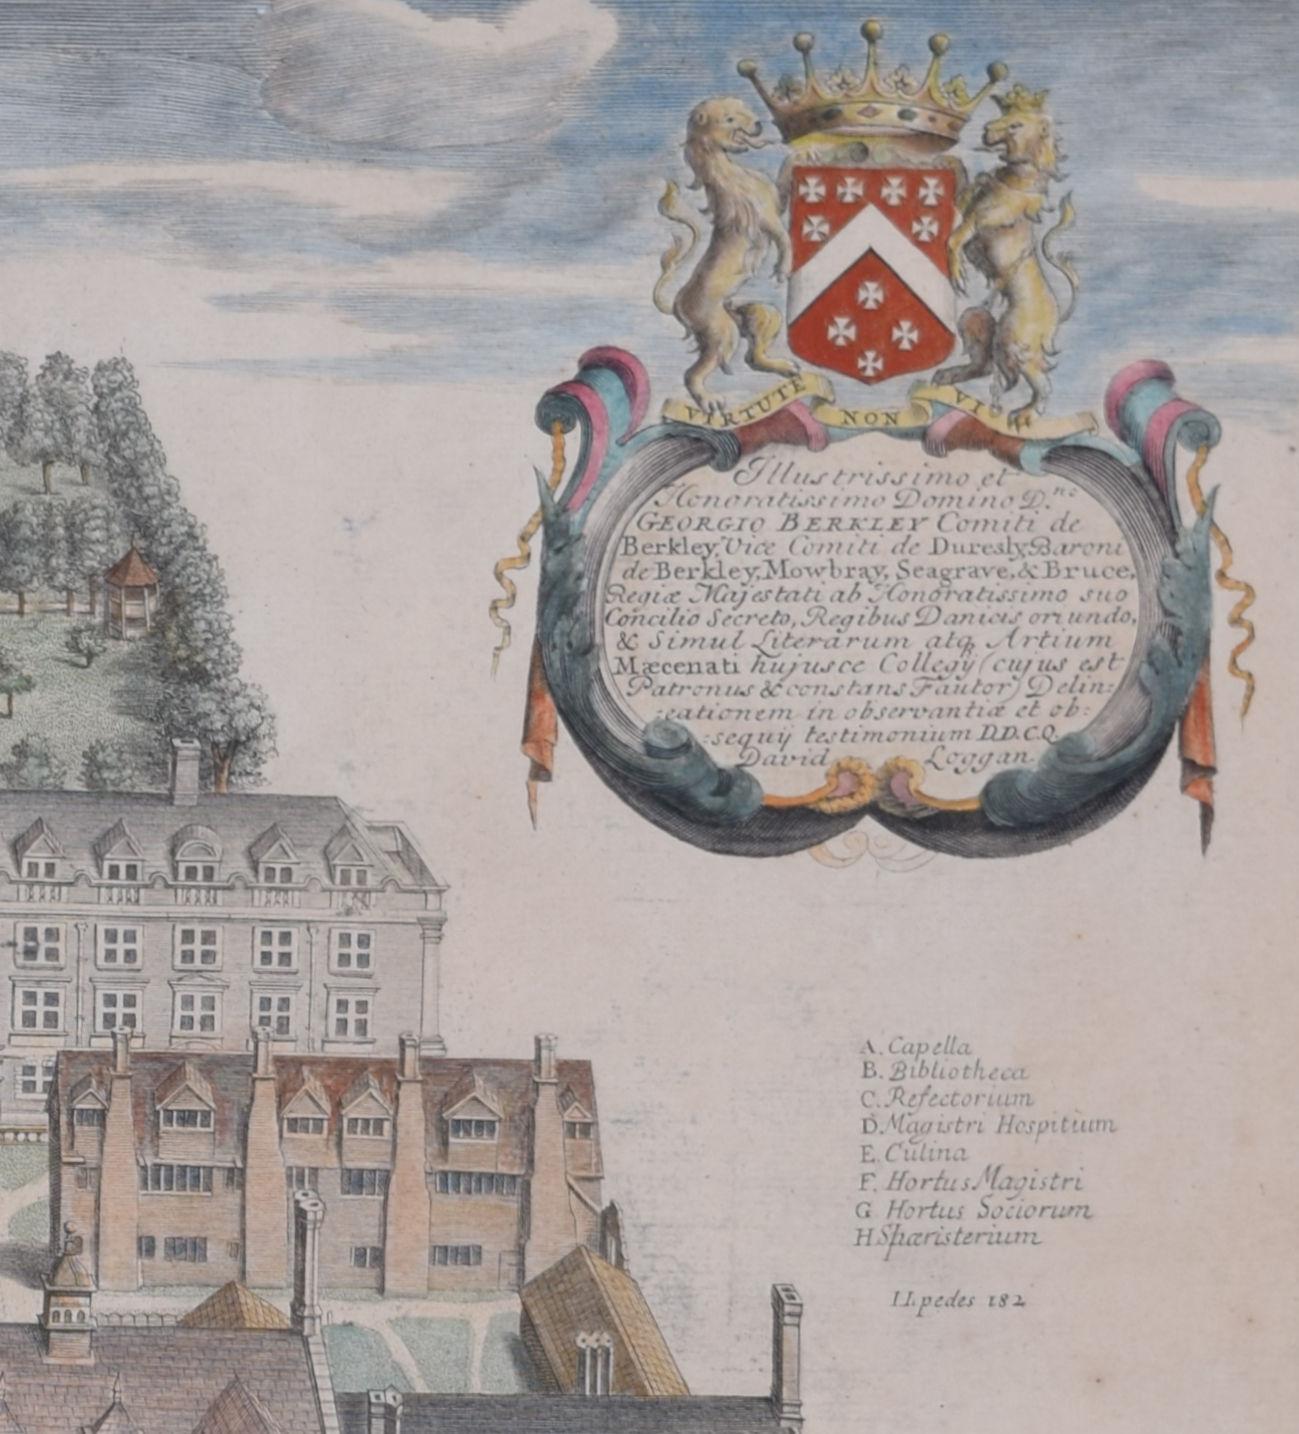 VIRTUTE NON VI
Illustrissimo et
Honoratissimo Domino D.ⁿᵒ
GEORGIO BERKLEY Comiti de
Berkley, Vice Comiti de Duresly, Baroni
de Berkley, Mowbray, Seagrave, & Bruce,
Regiæ Majestati ab Honoratissimo suo
Concilio Secreto, Regibus Danicis oriundo,
& Simul Literarum atq Artium
Mæcenati hujusce Collegij (cujus est
Patronus & constans Fautor) Delin:
:eationem in observantiæ et ob:
:sequij testimonium D.D.C.Q.
David Loggan
A. Capella
B. Bibliotheca
C. Refectorium
D. Magistri Hospitium
E. Culina
F. Hortus Magistri
G Hortus Sociorum
H Sphæristerium
pedes 182